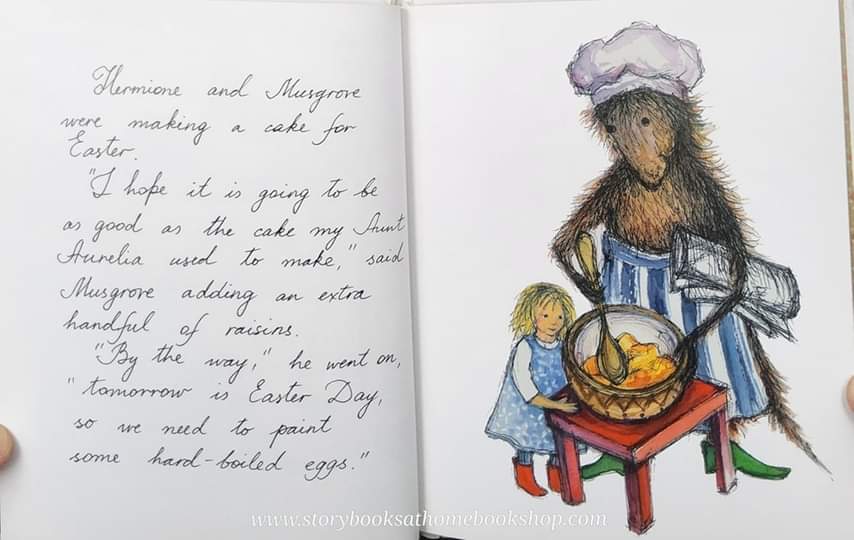 Hermione and Musgrove
were making a cake for
Easter.
"I hope it is going to be
as good as the cake my Aunt
Aurelia used to make," said
Musgrove adding an extra
handful of raisins.
"By the way," he went on,
"tomorrow is Easter Day,
so we need to paint
some hard-boiled eggs."
www.storybooksathomebookshop.com